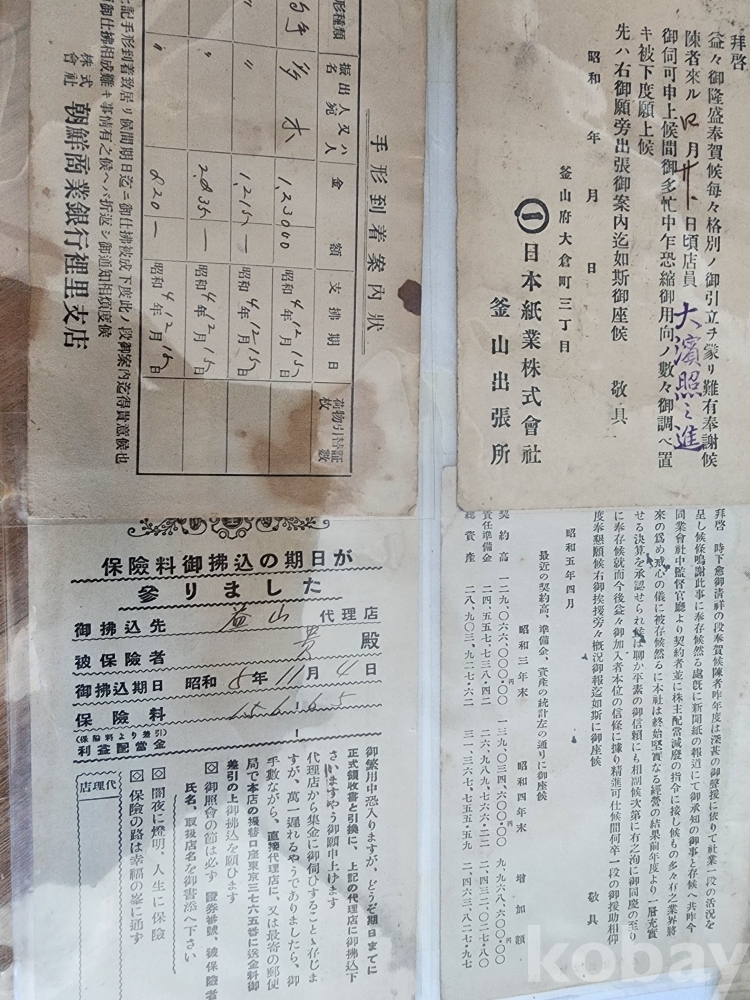 手形到着案內狀
手形種類
振出人又ハ名宛人
金額
支拂期日
荷物引替証枚數
1,23000
昭和4年12月15日
〃
1,215—
昭和4年12月15日
〃
2,835—
昭和4年12月15日
820—
昭和4年12月15日
記手形到着致居リ候間期日迄ニ御仕拂被成下度此ノ段御案內迄得貴意候也
御仕拂相成難キ事情有之候ヘバ折返シ御通知相煩度候
株式會社 朝鮮商業銀行裡里支店
拜啓
益々御隆盛奉賀候每々格別ノ御引立ヲ蒙リ難有奉謝候
陳者來ル 月 日頃店員 大濱照之進
御伺可申上候間御多忙中乍恐縮御用向ノ數々御調べ置
キ被下度願上候
先ハ右御願旁出張御案內迄如斯御座候 敬具
昭和 年 月 日
釜山府大倉町三丁目
㊀日本紙業株式會社
釜山出張所
保險料御拂込の期日が
參りました
御拂込先 益山 代理店
被保險者 殿
御拂込期日 昭和5年11月4日
保險料
(保險料より差引)
利益配當金
御繁用中恐入りますが、どうぞ期日までに
正式領收書と引換に、上記の代理店に御拂込下
さいますやう御願申上げます
代理店から集金に御伺ひすることゝ存じま
すが、萬一遲れるやうでありましたら、御
手數ながら、直接代理店に、又は最寄の郵便
局で本店の振替口座東京三七六五番に送金料御
差引の上御拂込を願ひます
◎御照會の節は必ず 證券番號、被保險者
氏名、取扱店名を御書添へ下さい
◎闇夜に燈明、人生に保險
◎保險の路は幸福の峯に通ず
代理店
拜啓 時下愈御清祥の段奉賀候陳者昨年度は深甚の御聲援に依りて社業一段の活況を
呈し候條鳴謝此事に奉存候然る處旣に新聞紙の報道にて御承知の御事と存候へ共昨今
同業會社中監督官廳より契約者並に株主配當減廢の指令に接し候もの多々有之業界將
來の爲め戒心の儀に被存候然るに本社は終始堅實なる經營の結果前年度より一層充實
せる決算を承認せられ候は聊か平素の御信賴にも相副候次第に有之洵に御同慶の至り
に奉存候就而今後益々御加入者本位の信條に據り精進可仕候間何卒一段の御援助相仰
度奉懇願候右御挨拶旁々概況御報迄如斯に御座候 敬具
昭和五年四月
最近の契約高、準備金、資產の統計左の通りに御座候
昭和三年末 昭和四年末 增加額
契約高 一二九、〇六六、〇〇〇・〇〇 一三九、〇三四、六〇〇・〇〇 九、九六八、六〇〇・〇〇
責任準備金 二四、五五七、七三八・四二 二六、九八九、七六六・二二 二、四三二、〇二七・八〇
總資產 二八、九〇三、九二七・六二 三一、三六七、七五五・五九 二、四六三、八二七・九七
kobay